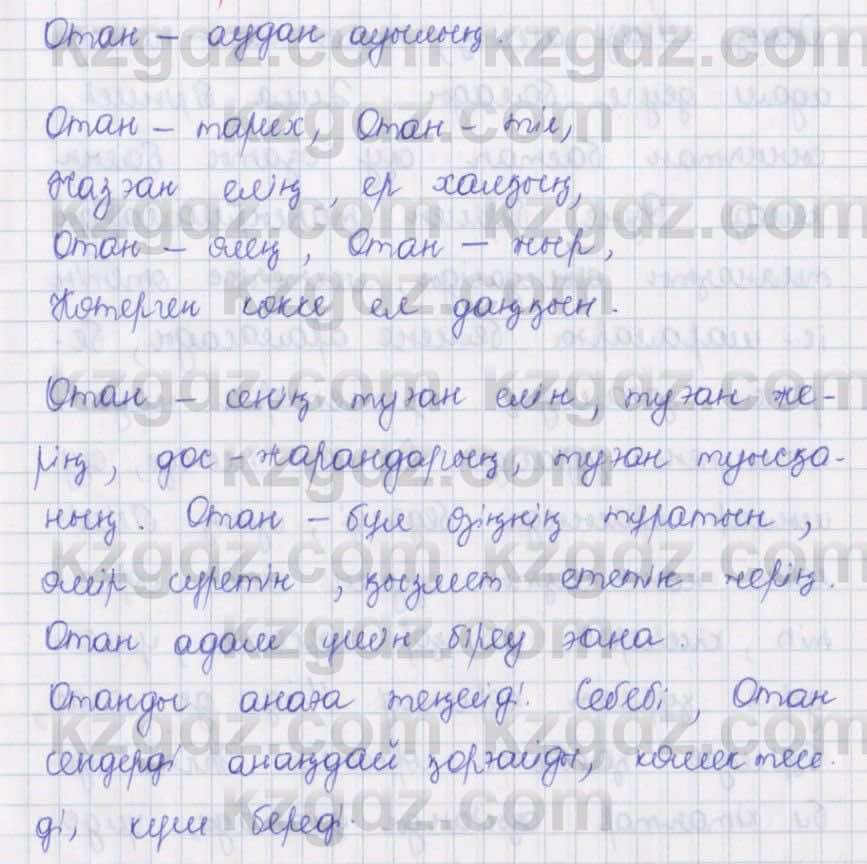 Отан – аудан ауылың.
Отан – тарих, Отан – тіл,
Жазған елің, ер халқың,
Отан – өлең, Отан – жыр,
Көтерген көкке ел даңқын.
Отан – сенің туған елін, туған же-
рің, дос-жарандарың, туған туысқа-
ның. Отан – бұл өзіңнің тұратын,
өмір сүретін, қызмет ететін жерің.
Отан адам үшін біреу ғана.
Отанды анаға теңейді. Себебі, Отан
сендерді анаңдай қорғайды, көмектесе-
ді, күш береді.
kzgdz.com